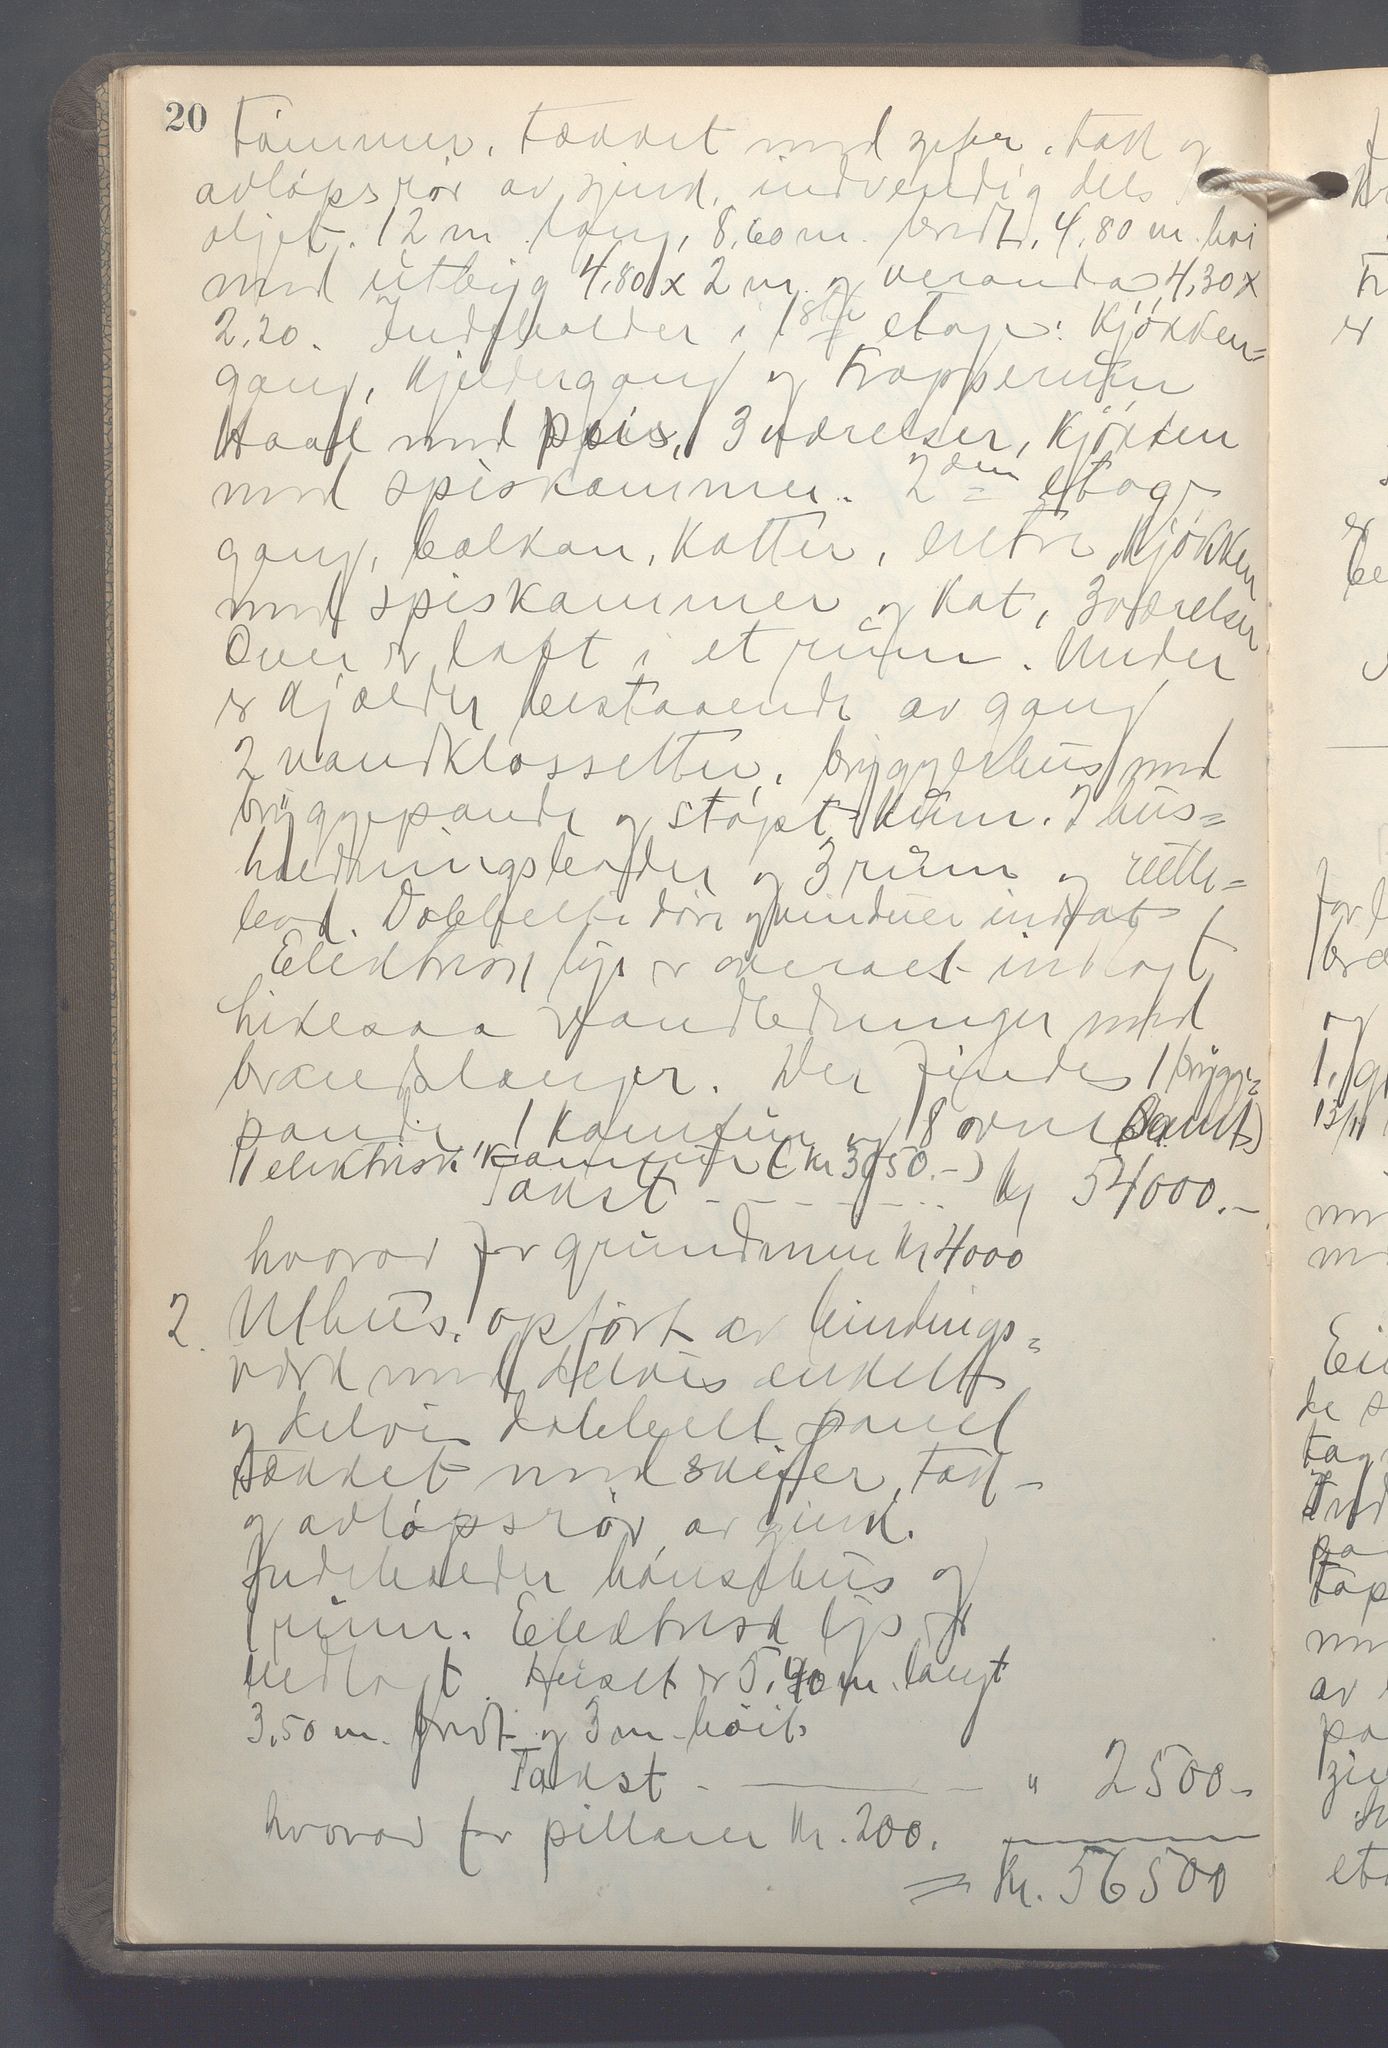 20
Tømmer, tækket med skifer, tak og
avløpsrør av zink, indvendig dels
oljet. 12 m lang, 8,60 m. bredt, 4,80 m. høi
med utbyg 4,80 x 2 m og veranda 4,30 x
2,20. Indeholder i 1ste etage: Kjøkken=
gang, Kjeldergang og Trapperum
Hall med peis, 3 værelser, Kjøkken
med spiskammer. 2den etage
gang, balkon, Kott, entre, Kjøkken
med spiskammer og Kot, 3 værelser
Over er loft i et rum. Under
er kjælder bestaaende av gang
2 vandklossetter, bryggerhus med
bryggepande og støpt kum. 2 hus=
holdningsboder og 3 rum og rulle=
bod. Dobbelte døre og vinduer indsat
Elektrisk lys er overalt indlagt
likesaa vandledninger med
brandslanger. Der findes 1 brygge=
pande, 1 Komfur og 8 ovne (samt)
1 elektrisk Komfur (Kr 350.-)
Takst - - - - - - Kr 54000.-
hvorav for grundmur Kr 4000
2. Uthus, opført av bindings=
værk med delvis enkelt
og delvis dobbelt panel
tækket med skifer, tak-
og avløpsrør av zink.
Indeholder hønsehus og
1 rum. Elektrisk lys er
indlagt. Huset er 5,40 m. langt
3,50 m. bredt og 3 m høit
Takst - - " 2500-
hvorav for pillarer Kr. 200.
= Kr. 56500